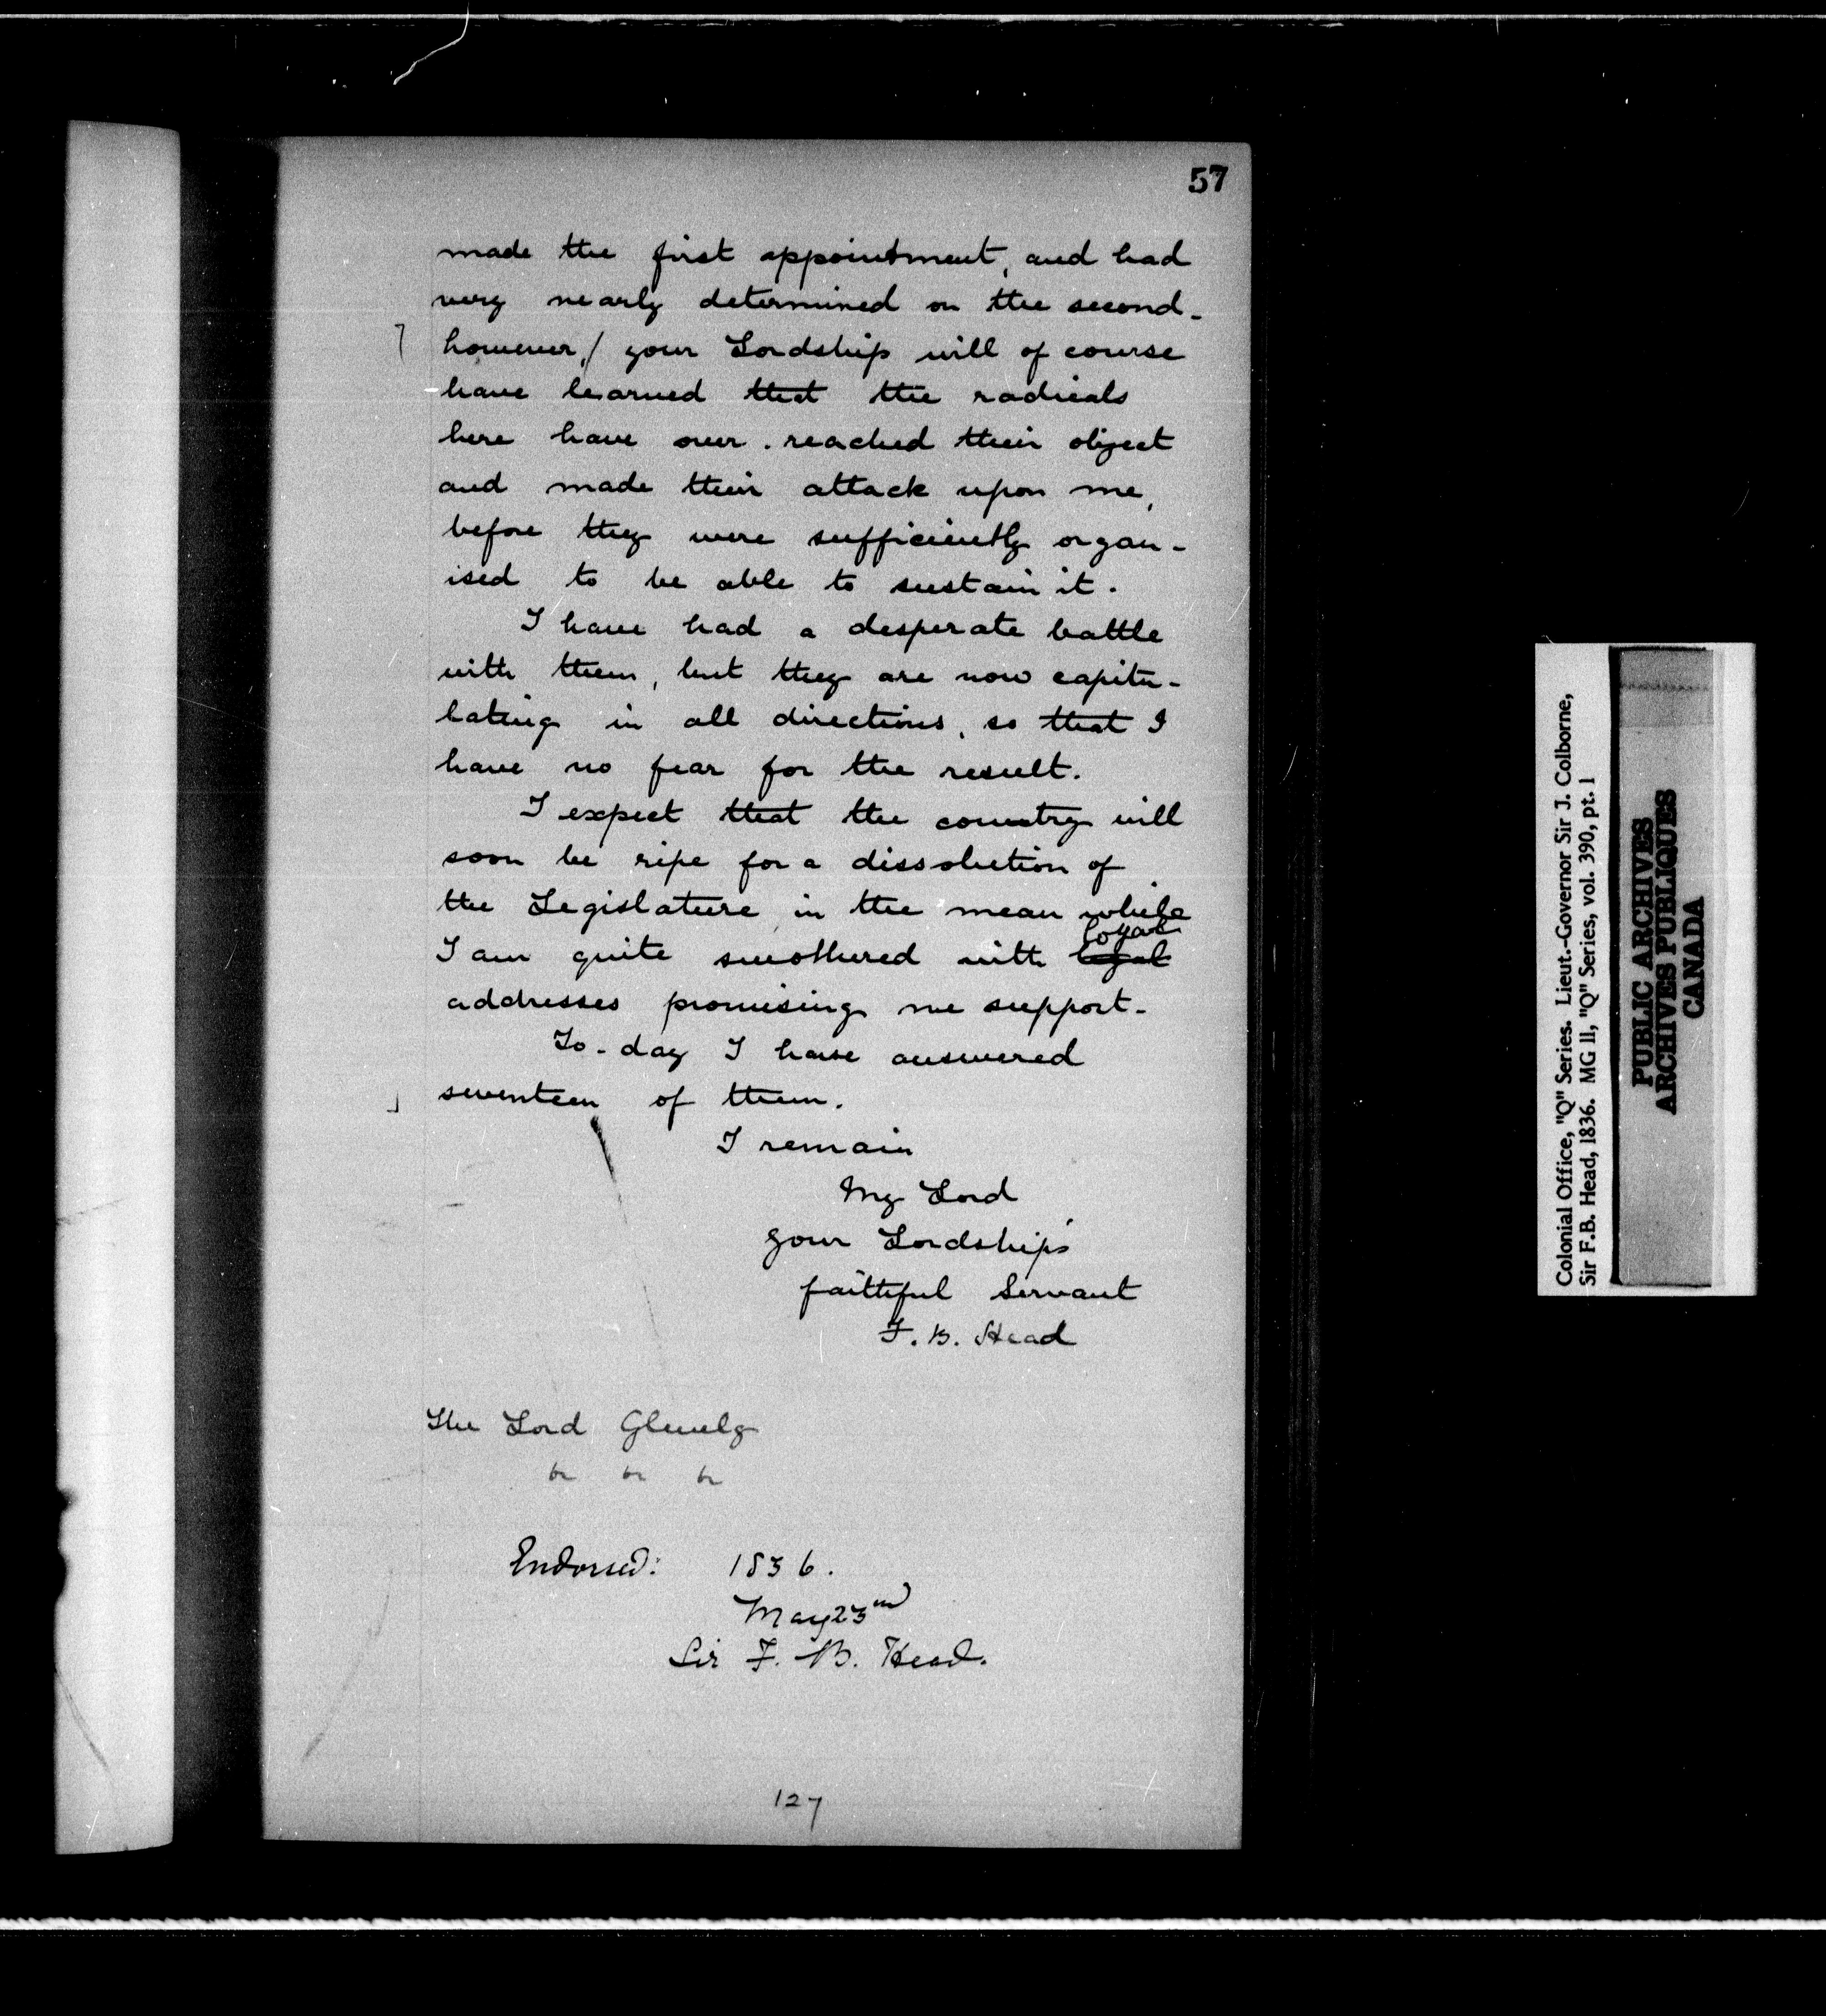 57
made the first appointment, and had
very nearly determined on the second -
however,/ your Lordship will of course
have learned that the radicals
here have over-reached their object
and made their attack upon me,
before they were sufficiently organ-
ised to be able to sustain it.
I have had a desperate battle
with them, but they are now capitu-
lating in all directions, so that I
have no fear for the result.
I expect that the country will
soon be ripe for a dissolution of
the Legislature, in the mean while
loyal
I am quite smothered with legal
addresses promising me support.
To-day I have answered
seventeen of them.
I remain
My Lord
your Lordship's
faithful Servant
F. B. Head
The Lord Glenelg
Endorsed: 1836.
May 23rd
Sir F. B. Head.
127
Colonial Office, "Q" Series. Lieut.-Governor Sir J. Colborne,
Sir F.B. Head, 1836. MG 11, "Q" Series, vol. 390, pt. 1
PUBLIC ARCHIVES
ARCHIVES PUBLIQUES
CANADA